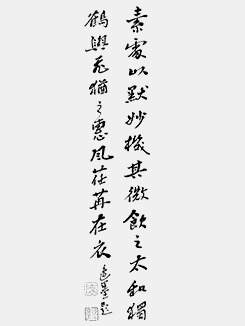 素處以默妙機其微飲之太和獨
鶴與飛猶之惠風荏苒在衣